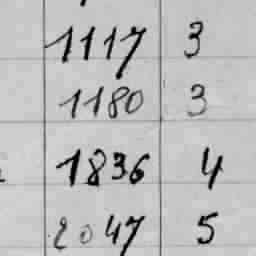 1117 3
1180 3
1836 4
2047 5